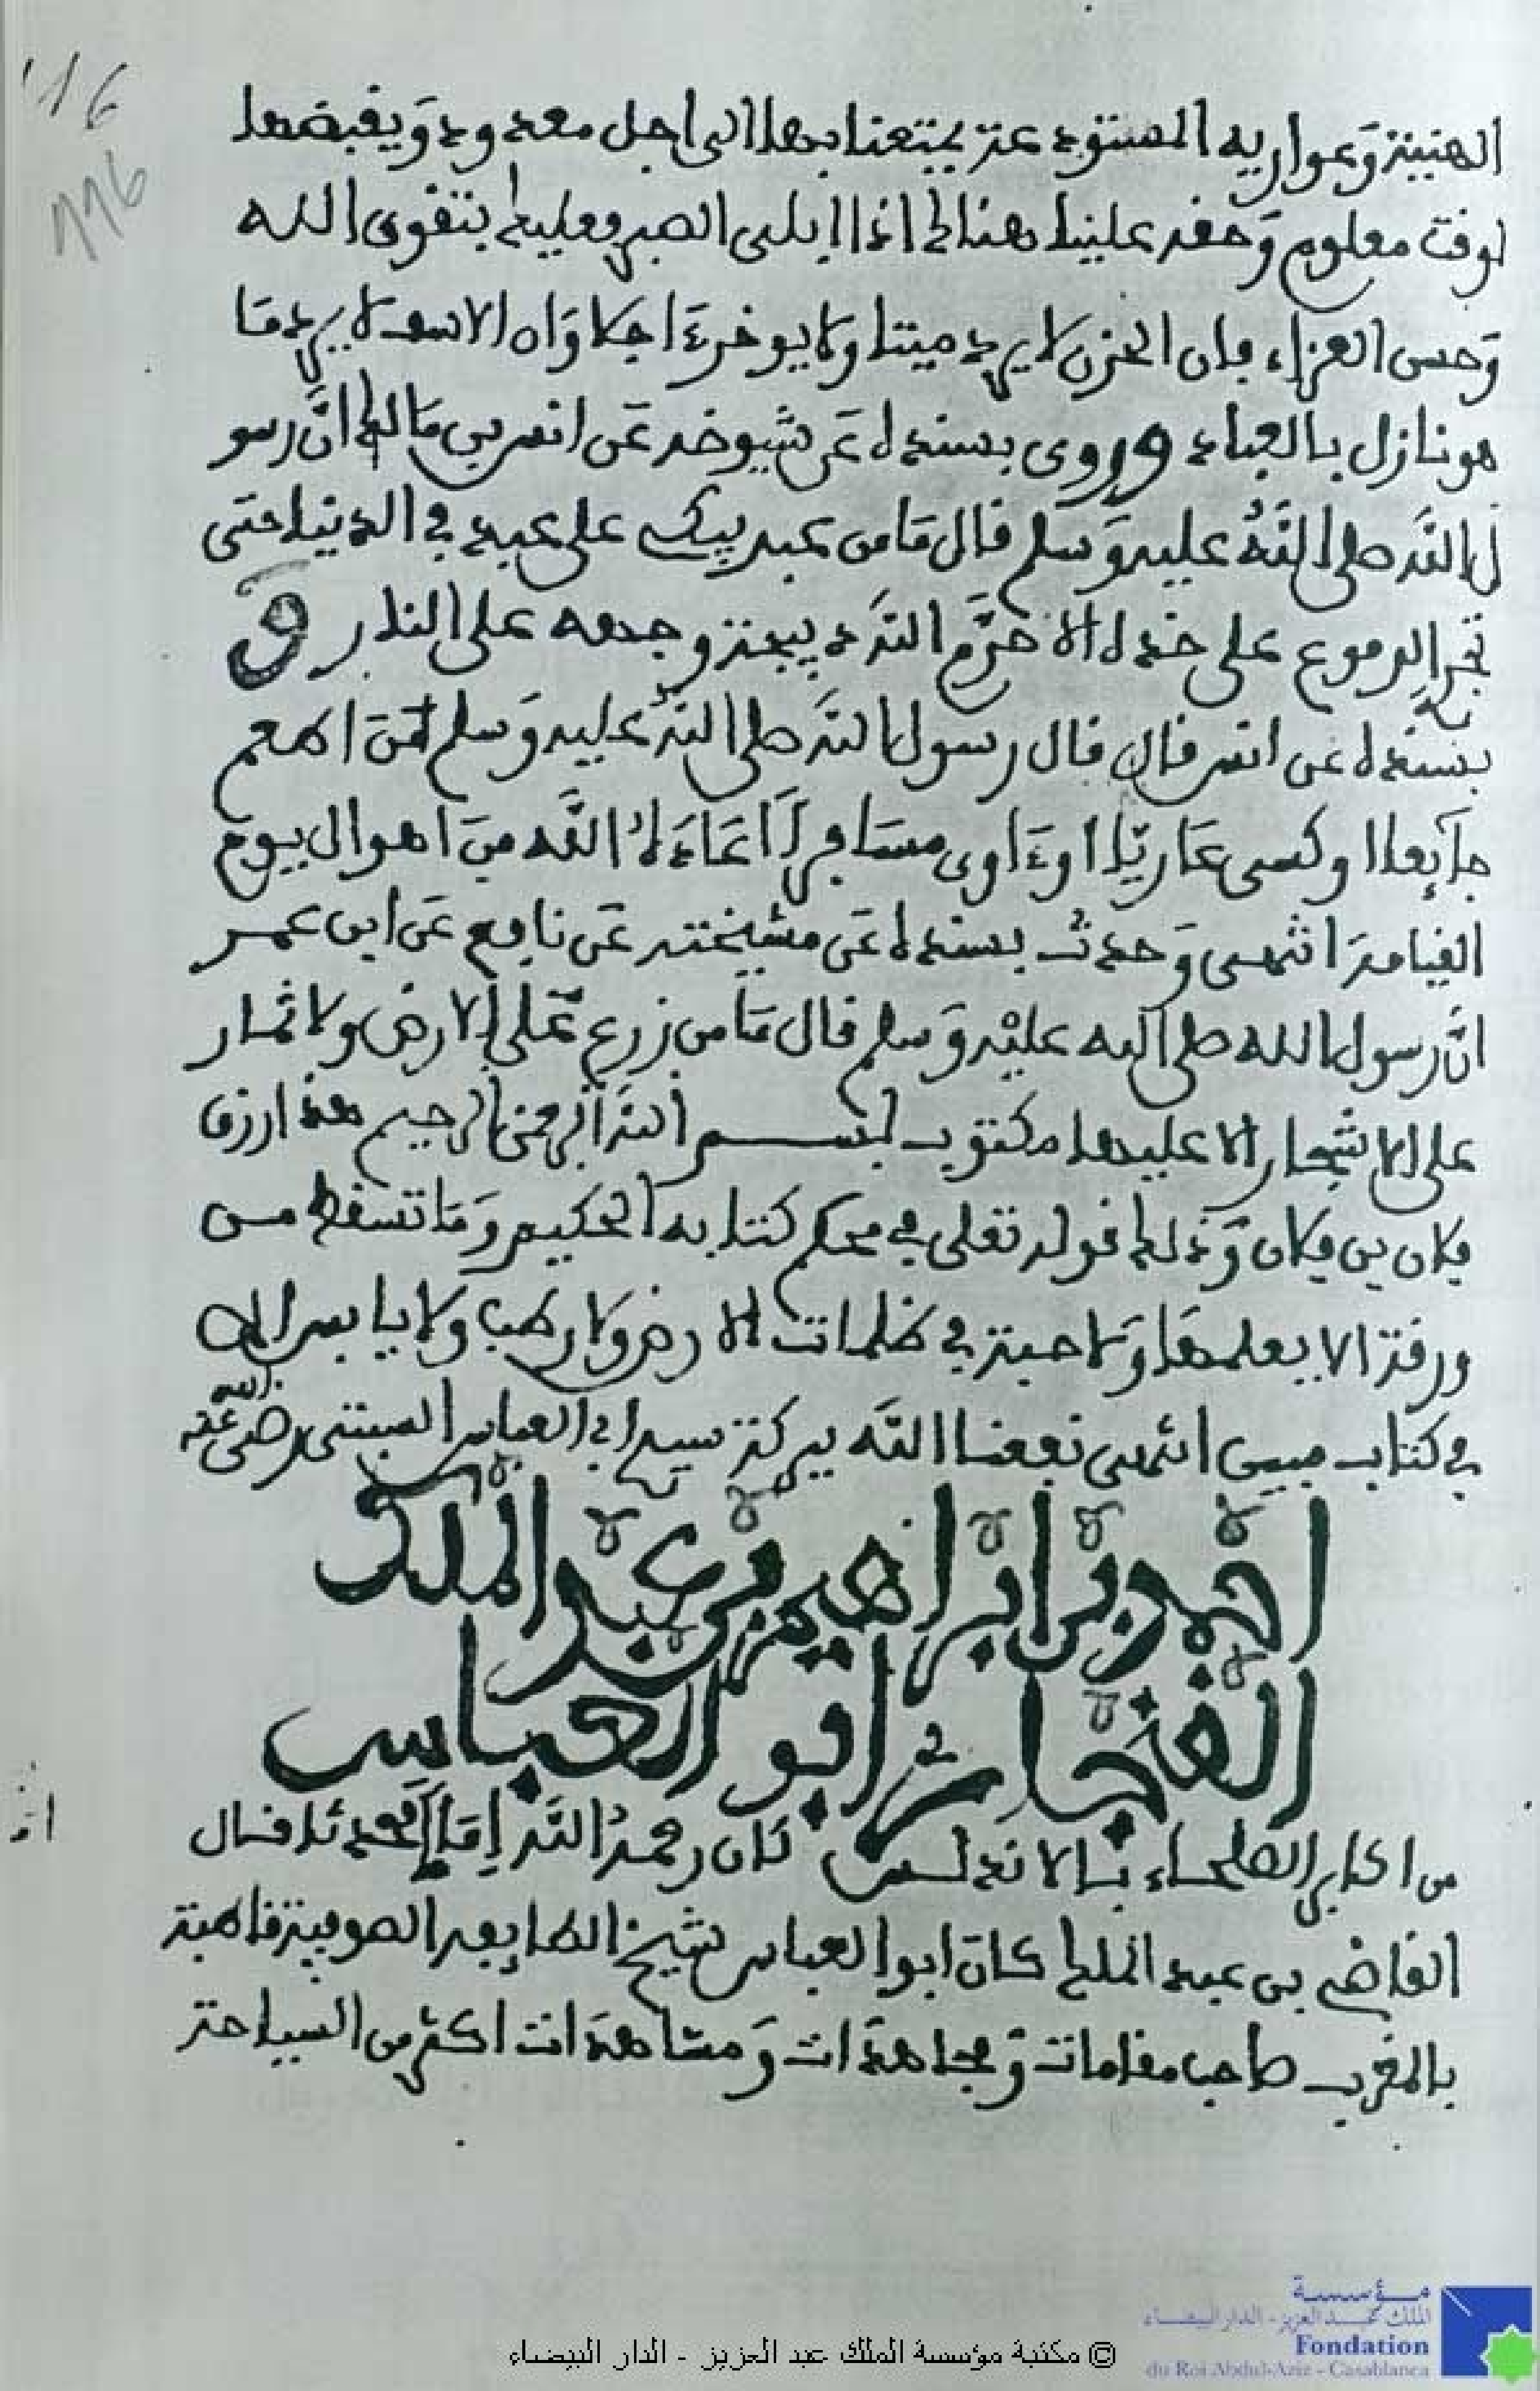 116
116
الهنيئة وَعواريه المستودعة يمتعنا بها الى اجل معدود وَيقبضها
لوقت معلوم وَحقه علينا هنالك اذا ابلى الصبر فعليك بتقوى الله
وَحسن العزاء فان الحزن لا يرد ميتا ولا يوخر ءَاجلا وَان الاسف لا يرد مَا
هو نازل بالعباد وروى بسنده عَن شيوخه عَن انس بن مَالك انَّ رسو
ل اللَّه صلى اللَّهُ عليه وَسلم قال مَا من عبد يبكـى على عبد في الدنيا حتى
تجر الدموع على خده الا حرَّم اللَّه ديبجة وجهه على النار و
بسنده عن انس قال قال رسول اللَّه صلى اللَّه عليه وَسلم مَن اطعم
جآيعا او كسى عَاريًا او ءَاوى مسَافرا اعَاذه اللَّه مِن اهوال يوم
القيامة انتهى وَحدث بسنده عَن مشيخته عَن نافع عَن ابن عمر
انَّ رسول الله صلى الله عليْه وَسلم قال مَا من زرع عَلى الارض ولا ثمار
على الاشجار الا عليها مكتوب بسم اللَّه الرحمن الرحيم هذا رزق
فلان بن فلان وَذلك قوله تعلى في محكم كتابه الحكيم وَمَا تسقط من
ورقة الا يعلمهَا وَلا حبة في ظلمات الارض ولا رطب ولا يابس الا
في كتاب مبين انتهى نفعنا اللَّه ببركة سيدي ابي العباس السبتي رضي الله عنه
احمد بن ابراهيم بن عبد الملك
القنجائري ابو العباس
من اكابر الصلحاء بالاندلس كان رحمهُ اللَّه إمَاما محدثا قال
القاضي بن عبد الملك كان ابو العباس شيخ الطايفة الصوفية قاطبة
بالمغرب صاحب مقامات وَمجاهدَات وَمشاهدَات اكثر من السياحة
مؤسسة
الملك عبد العزيز - الدار البيضاء
Fondation
du Roi Abdul-Aziz - Casablanca
© مكتبة مؤسسة الملك عبد العزيز - الدار البيضاء